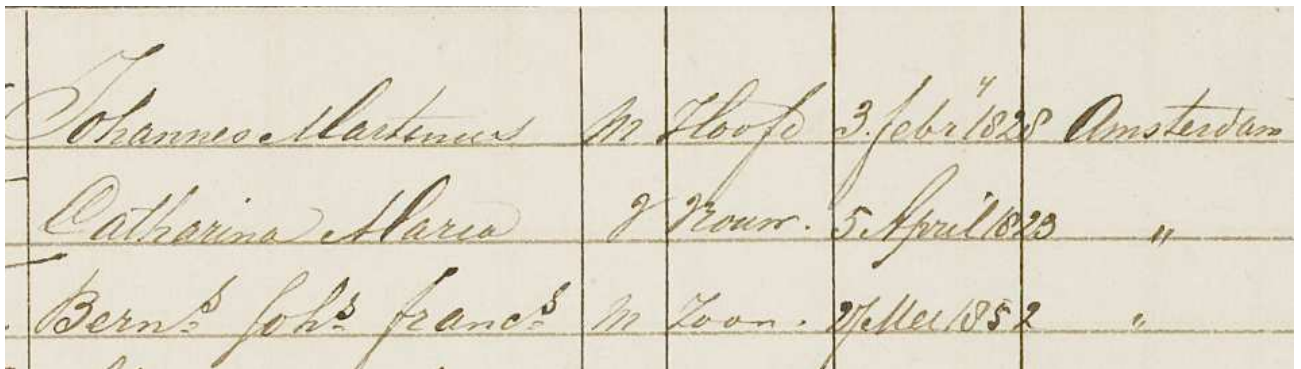 Johannes Martinus M Hoofd 3. febrij 1828 Amsterdam
Catharina Maria V Vrouw. 5 April 1823 "
Berns Johs francs M Zoon. 27 Mei 1852 "